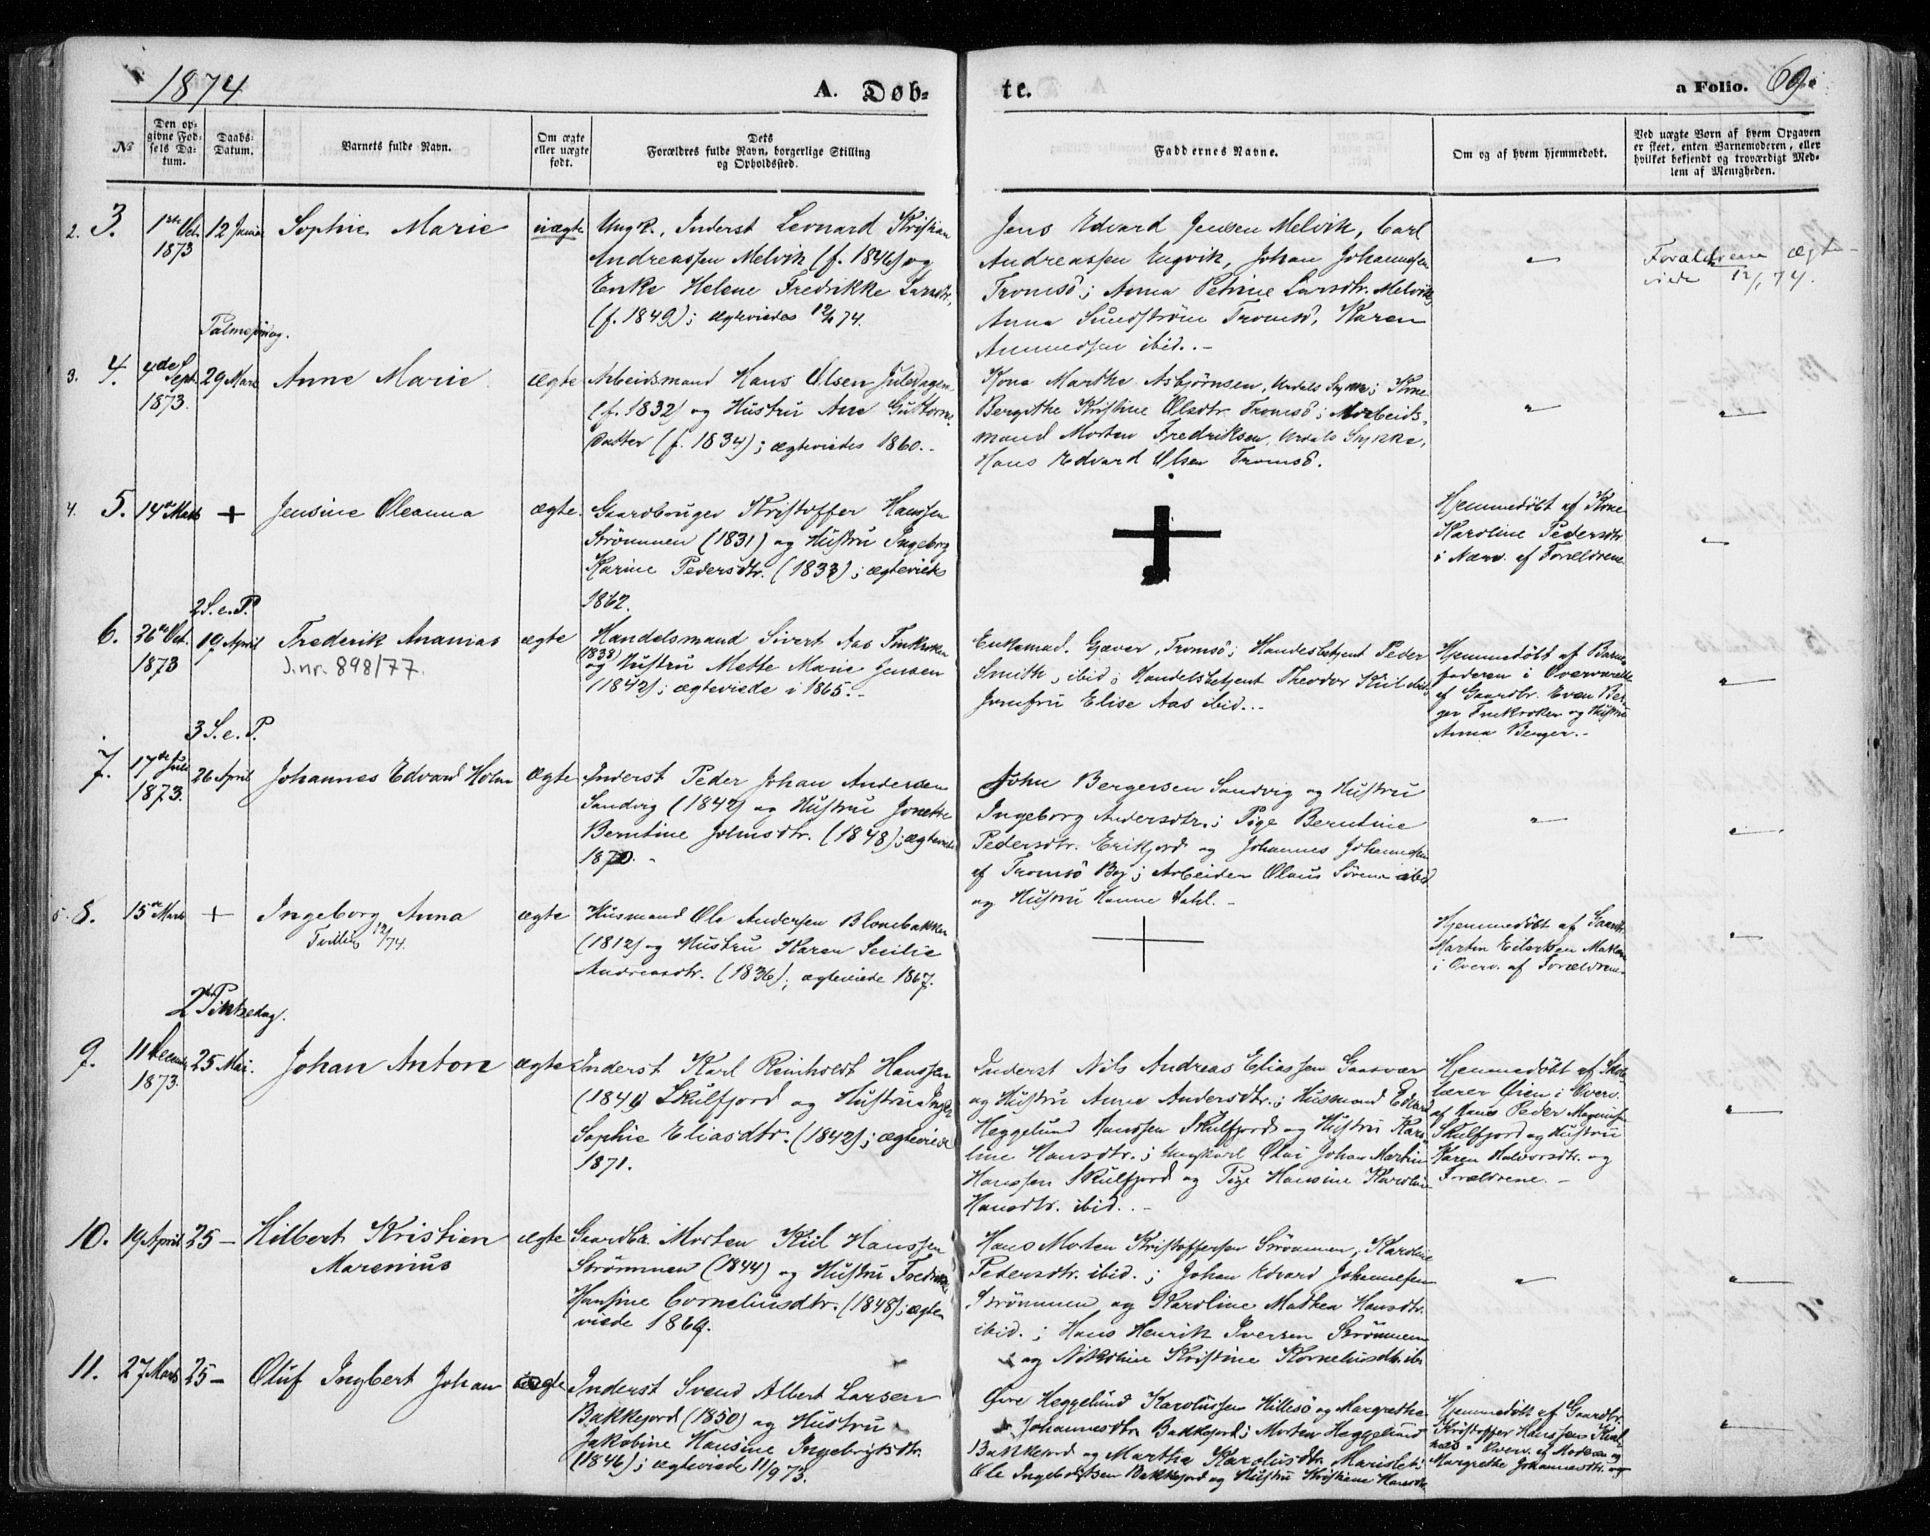 1874 A. Døb- te. a Folio. 69a
No
Den opgivne Fødsels Datum.
Daabs-Datum.
Barnets fulde Navn.
Om ægte eller uægte født.
Dets Forældres fulde Navn, borgerlige Stilling og Opholdssted.
Faddernes Navne.
Om og af hvem hjemmedøbt.
Ved uægte Børn af hvem Opgaven er skeet, enten Barnemoderen, eller hvilket bekjendt og troværdigt Medlem af Menigheden.
2. 3. 1ste Oct. 1873 12 Januar Sophie Marie uægte
Ungk., Inderst Leonard Kristian
Andreassen Melvik (f. 1846) og
Enke Helene Fredrikke Larsdtr.
(f. 1849); ægteviedes 12/1 74.
Jens Edvard Jensen Melvik, Carl
Andreassen Engvik, Johan Johannesen
Tromsö; Anna Petrine Larsdtr. Melvik,
Anna Sundström Tromsö, Karen
Amundsen ibid. -
"
Forældrene ægte-
viede 12/1 74.
Palmesöndag.
3. 4. 4de Sept. 1873. 29 Marts Anne Marie ægte
Arbeidsmand Hans Olsen
(f. 1832) og Hustru Ane Guttorms-
datter (f. 1834); ægteviedes 1860. -
Kone Marthe Asbjørnsen, Kone
Bergithe Kristine Olsdtr. Tromsö; Arbeids-
mand Morten Fredriksen,
Hans Edvard Olsen Tromsö.
"
"
4. 5. 14de Marts + Jensine Oleanna ægte.
Gaardbruger Kristoffer Hanssen
Strömmen (1831) og Hustru Ingeborg
Karine Pedersdtr. (1833); ægteviede
1862.
Hjemmedöbt af Kone
Karoline Pedersdtr.
i Nærv. af Forældrene
"
2 S. e. P.
6. 26de Oct. 1873 19 April Frederik Ananias ægte
J.nr. 898/77.
Handelsmand Sivert Aas Finkroken
(1838) og Hustru Mette Marie Jensen
(1842); ægteviede i 1865. -
Enkemad. Gjæver, Tromsö; Handelsbetjent Peder
Smith, ibid; Handelsbetjent Theodor Kiil ibid
Jomfru Elise Aas ibid. -
Hjemmedöbt af Barne-
faderen i Overværelse
af Gaardbr. Even Ber-
ger Finkroken og Hustru
Anna Berger. -
"
3 S. e. P.
7. 17de Juli 1873. 26 April Johannes Edvard Holm ægte
Inderst Peder Johan Andersen
Sandvig (1842) og Hustru Jonette
Berntine Johnsdtr. (1848); ægteviede
1870. -
John Bergersen Sandvig og Hustru
Ingeborg Andersdtr.; Pige Berntine
Pedersdtr. Erikfjord og Johannes Johannesen
af Tromsö By; Arbeider Olaus Sörens ibid
og Hustru Hanne Dahl. -
"
"
5. 8. 15de Marts + Ingeborg Anna ægte
12/74.
Husmand Ole Andersen Blombakken
(1812) og Hustru Karen Secilie
Andreasdtr. (1836); ægteviede 1867.
Hjemmedöbt af Gaardbr.
Martin
i Overv. af Forældrene.
"
2den Pintsedag.
9. 11 Decemb. 1873. 25 Mai. Johan Anton ægte
Inderst Karl Reinholdt Hanssen
(1841) Skulfjord og Hustru Inger
Sophie Eliasdtr. (1842); ægteviede
1871.
Inderst Nils Andreas Eliassen Gaasvær
og Hustru Anne Andersdtr.; Husmand Edvard
Heggelund Hanssen Skulfjord og Hustru Karo-
line Hansdtr.; Ungkarl Olai Johan Martin
Hanssen Skulfjord og Pige Hansine Karoline
Hansdtr. ibid. -
Hjemmedöbt af Sko-
lærer Öien i Overv.
af Hans Peder
Skulfjord og Hustru
Karen Halvorsdtr. og
Forældrene. -
"
10. 19 April 25 - Hilbert Kristian
Marenius ægte
Gaardbr. Morten Kiil Hanssen
Strömmen (1844) og Hustru Fredrikke
Hansine Corneliusdtr. (1848); ægte-
viede 1869.
Hans Morten Kristoffersen Strömmen, Karoline
Pedersdtr. ibid.; Johan Edvard Johannesen
Strömmen og Karoline Mathea Hansdtr.
ibid.; Hans Henrik Iversen Strömmen
og Nikoline Kristine Korneliusdtr. ibi.
"
"
11. 27 Marts 25 - Oluf Ingbert Johan ægte
Inderst Svend Albert Larsen
Bakkejord (1850) og Hustru
Jakobine Hansine Ingebrigtsdtr.
(1846); ægteviede 11/9 73.
Heggelund Karolussen Hillesö og Margrethe
Johannesdtr. Bakkejord; Morten Heggelund
Bakkejord og Martha Karolusdtr.
Ole Ingebrigtsen Bakkejord og Hustru Kristiane Hansdtr.
Hjemmedöbt af Gaardbr.
Kristoffer Hanssen
i Overv. af Moderen og
Margrethe Johannesdtr.
"